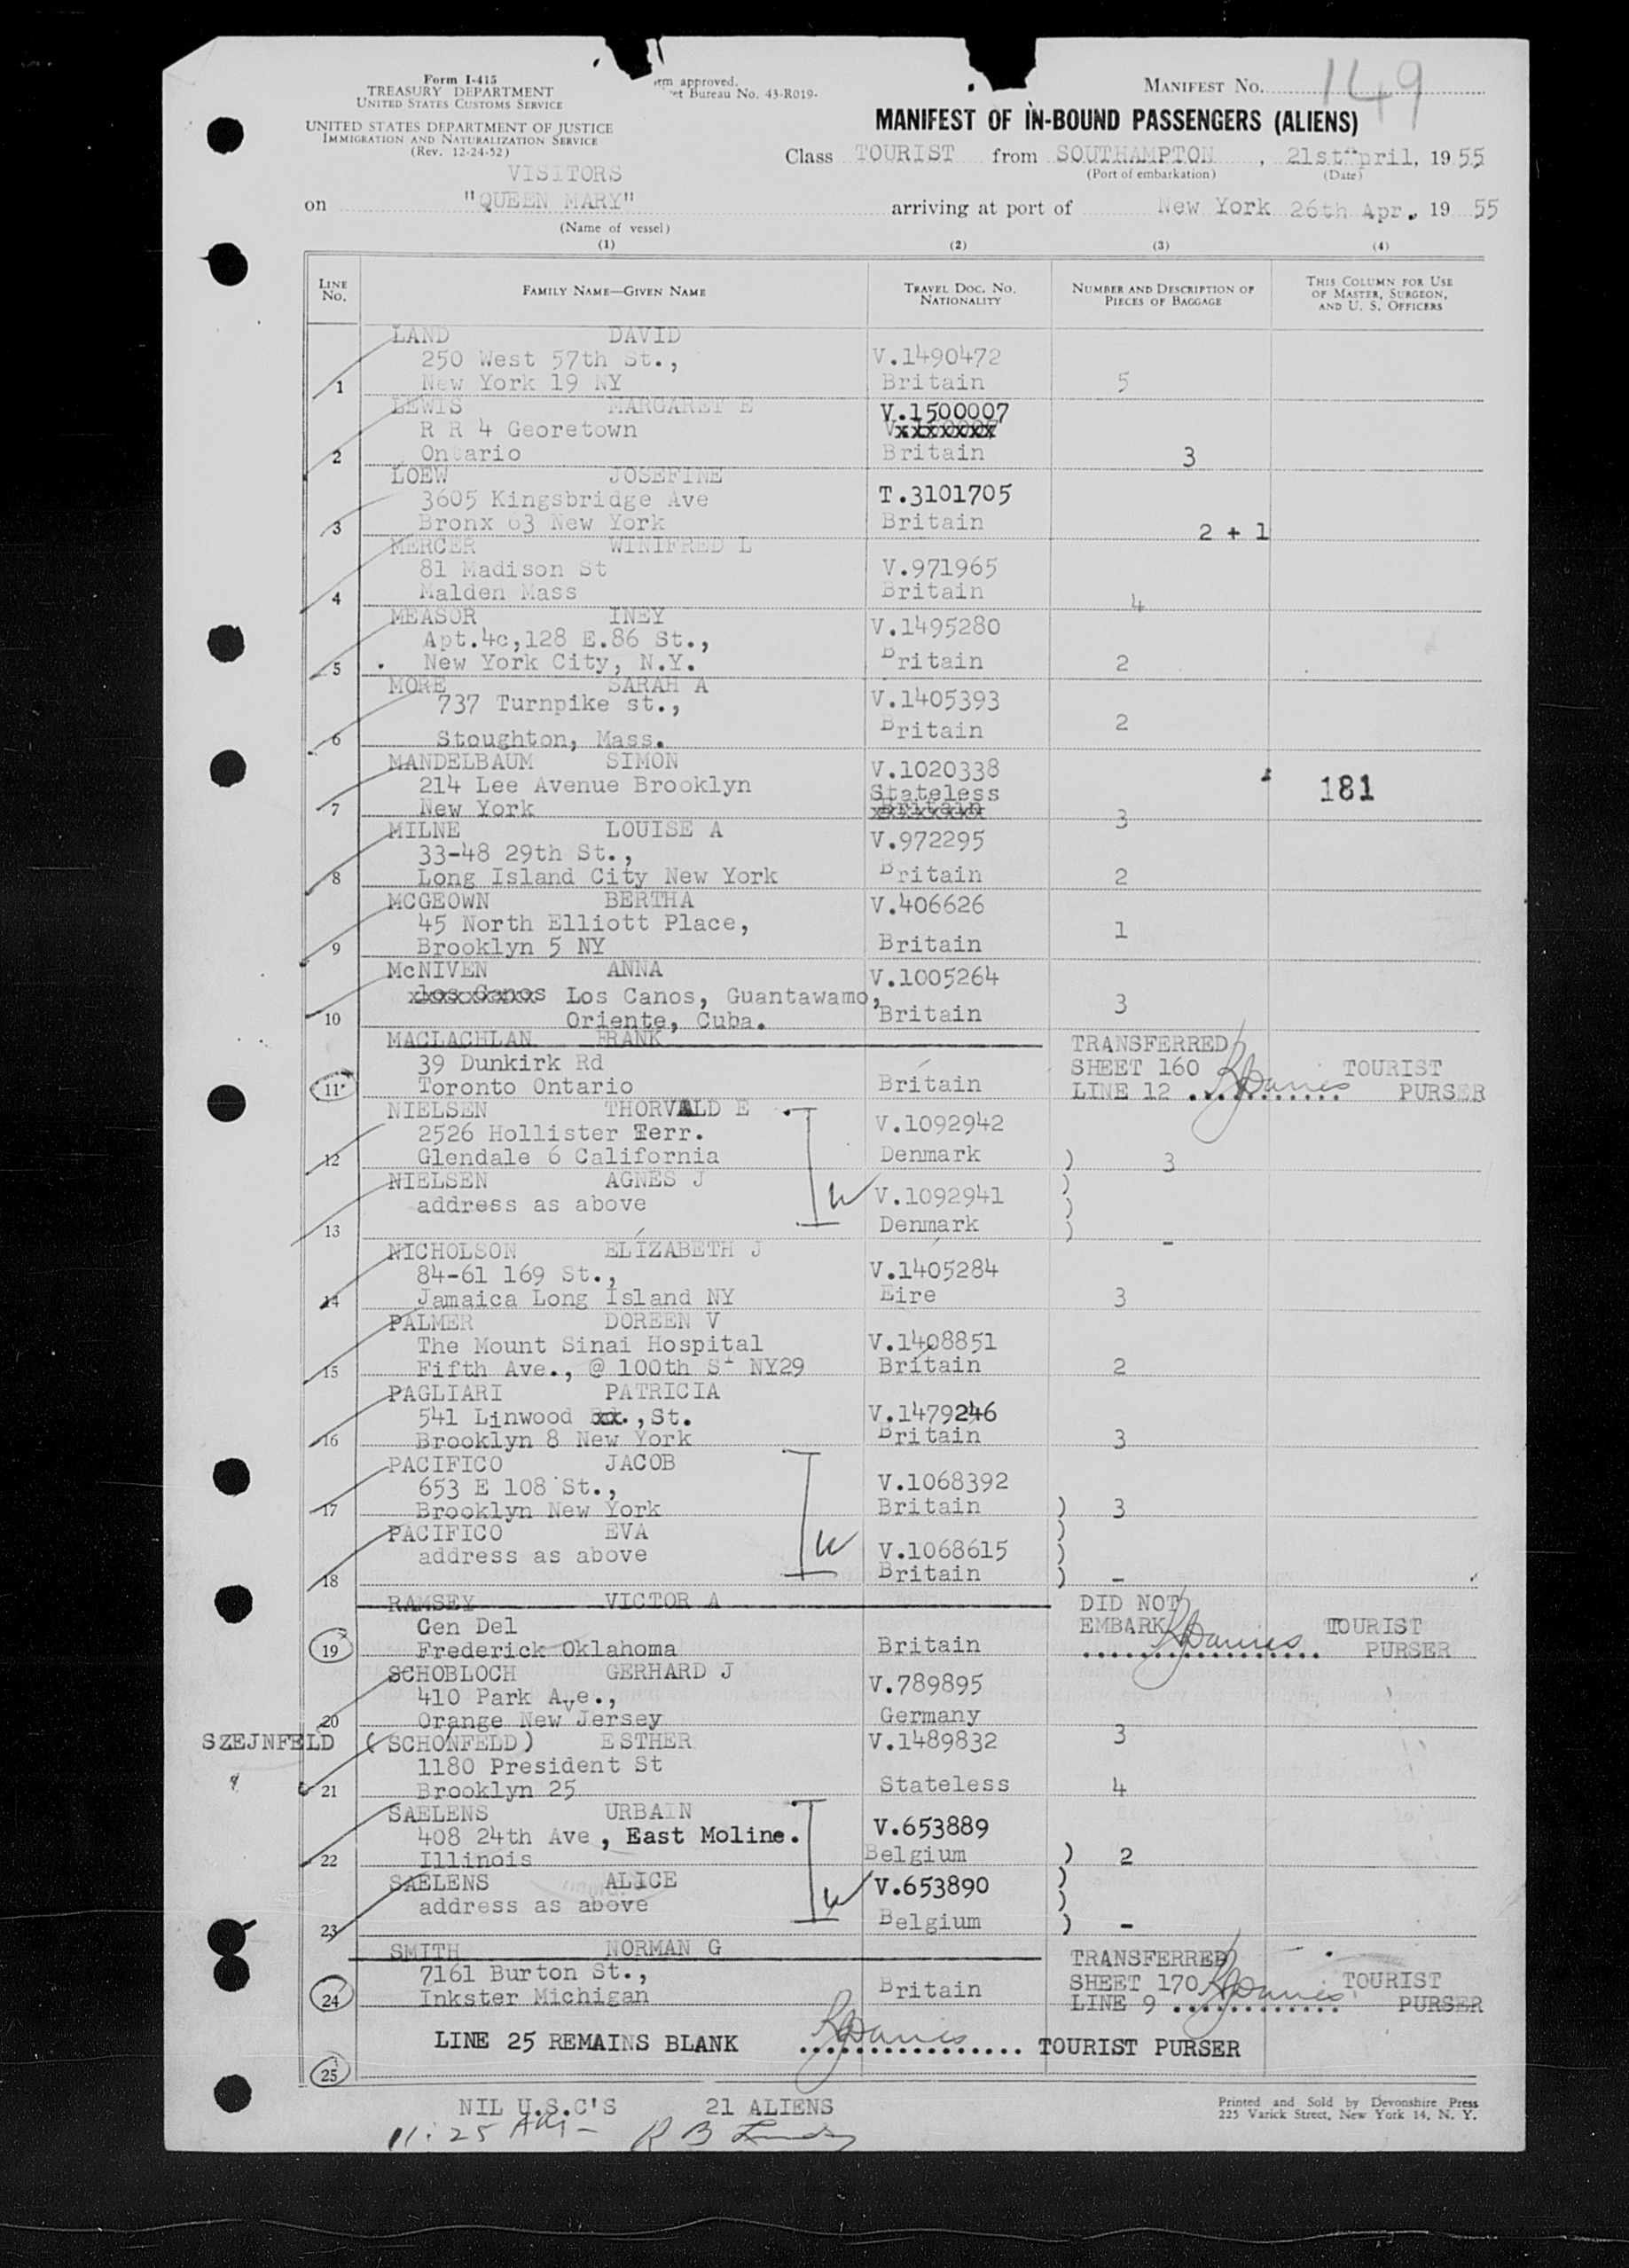 Form I-415
TREASURY DEPARTMENT
UNITED STATES CUSTOMS SERVICE
UNITED STATES DEPARTMENT OF JUSTICE
IMMIGRATION AND NATURALIZATION SERVICE
(Rev. 12-24-52)
approved.
Bureau No. 43-R019-
MANIFEST NO. 149
MANIFEST OF IN-BOUND PASSENGERS (ALIENS)
Class TOURIST from SOUTHAMPTON, 21st April, 1955
(Port of embarkation) (Date)
VISITORS
on "QUEEN MARY" arriving at port of New York 26th Apr. 1955
(Name of vessel)
(1) (2) (3) (4)
LINE NO. FAMILY NAME—GIVEN NAME TRAVEL DOC. NO. NATIONALITY NUMBER AND DESCRIPTION OF PIECES OF BAGGAGE THIS COLUMN FOR USE OF MASTER, SURGEON, AND U. S. OFFICERS
LAND DAVID
250 West 57th St., V.1490472
1 New York 19 NY Britain 5
LEWIS MARGARET E V.1500007
R R 4 Georetown
2 Ontario Britain 3
LOEW JOSEFINE
3605 Kingsbridge Ave T.3101705
3 Bronx 63 New York Britain 2 + 1
MERCER WINIFRED L
81 Madison St V.971965
4 Malden Mass Britain 4
MEASOR INEY V.1495280
Apt.4c,128 E.86 St.,
5 New York City, N.Y. Britain 2
MORE SARAH A V.1405393
737 Turnpike st.,
6 Stoughton, Mass. Britain 2
MANDELBAUM SIMON V.1020338
214 Lee Avenue Brooklyn Stateless 181
7 New York Britain 3
MILNE LOUISE A V.972295
33-48 29th St.,
8 Long Island City New York Britain 2
MCGEOWN BERTHA V.406626
45 North Elliott Place, 1
9 Brooklyn 5 NY Britain
McNIVEN ANNA V.1005264
los Canos Los Canos, Guantawamo, 3
10 Oriente, Cuba. Britain
MACLACHLAN FRANK TRANSFERRED
39 Dunkirk Rd SHEET 160 TOURIST
11 Toronto Ontario Britain LINE 12 ............ PURSER
NIELSEN THORVALD E V.1092942
2526 Hollister Terr.
12 Glendale 6 California Denmark ) 3
NIELSEN AGNES J ) V.1092941
address as above W )
13 Denmark ) -
NICHOLSON ELIZABETH J
84-61 169 St., V.1405284
14 Jamaica Long Island NY Eire 3
PALMER DOREEN V
The Mount Sinai Hospital V.1408851
15 Fifth Ave., @ 100th St NY29 Britain 2
PAGLIARI PATRICIA
541 Linwood xx.,St. V.1479246
16 Brooklyn 8 New York Britain 3
PACIFICO JACOB
653 E 108 St., V.1068392
17 Brooklyn New York Britain ) 3
PACIFICO EVA )
address as above W V.1068615 )
18 Britain ) -
RAMSEY VICTOR A DID NOT
Gen Del EMBARK TOURIST
19 Frederick Oklahoma Britain ................. PURSER
SCHOBLOCH GERHARD J V.789895
410 Park Ave.,
20 Orange New Jersey Germany 3
SZEJNFELD (SCHONFELD) ESTHER V.1489832
1180 President St
21 Brooklyn 25 Stateless 4
SAELENS URBAIN
408 24th Ave, East Moline. V.653889
22 Illinois Belgium ) 2
SAELENS ALICE W V.653890 )
address as above )
23 Belgium ) -
SMITH NORMAN G TRANSFERRED
7161 Burton St., SHEET 170 TOURIST
24 Inkster Michigan Britain LINE 9 ............ PURSER
LINE 25 REMAINS BLANK ................ TOURIST PURSER
25
NIL U.S.C'S 21 ALIENS
11:25 AM-
Printed and Sold by Devonshire Press
225 Varick Street, New York 14, N. Y.